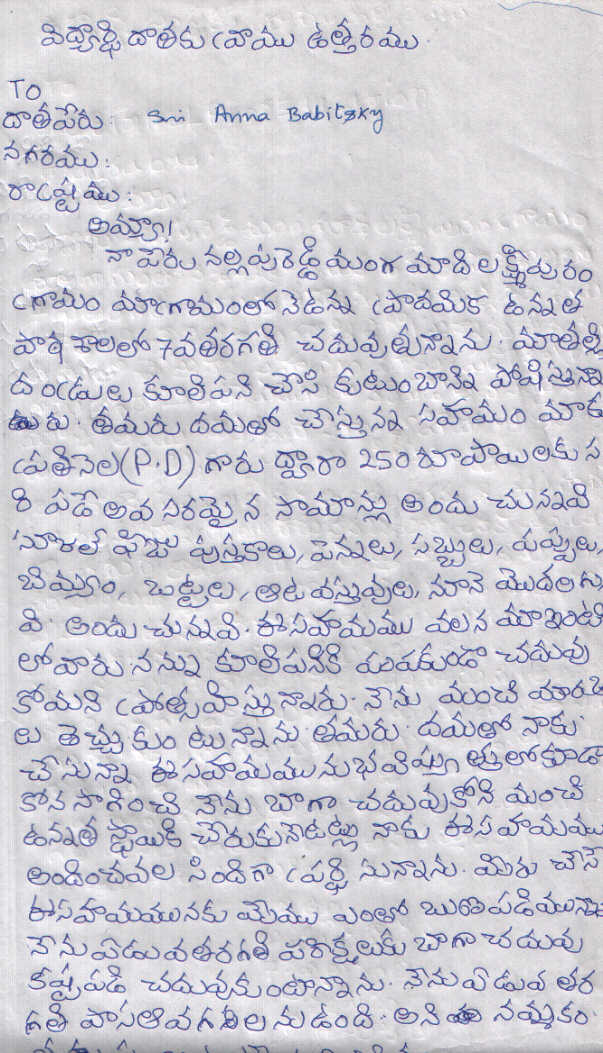 విద్యార్థి దాతకు వ్రాయు ఉత్తరము.
To
దాతపేరు: Smi Anna Babitsky
నగరము:
రాష్ట్రము:
అమ్మా!
నా పేరు నల్లపురెడ్డి మంగ మాది లక్ష్మీపురం
గ్రామం మాగ్రామంలోనెఉన్న ప్రాదమిక ఉన్నత
పాఠశాలలో 7వతరగతి చదువుతున్నాను. మాతల్లి
దండ్రులు కూలిపని చేసి కుటుంబాన్ని పోషిస్తున్నా
రు. తమరు దయతో చేస్తున్న సహాయం మాకు
ప్రతినెల (P.D) గారు ద్వారా 250 రూపాయిలకు స
రి పడే అవసరమైన సామాన్లు అందుచున్నవి
స్కూల్ ఫీజు పుస్తకాలు, పెన్నులు, సబ్బులు, పప్పులు,
బియ్యం, బట్టలు, ఆట వస్తువులు, నూనె మొదలగు
వి. అందుచున్నవి. ఈసహాయము వలన మాఇంటి
లోవారు నన్ను కూలిపనికి పంపకుండా చదువు
కోమని ప్రోత్సహిస్తున్నారు. నేను మంచి మార్కు
లు తెచ్చుకుంటున్నాను తమరు దయతో నాకు
చేసున్నా ఈసహాయమునుభవిష్యత్తులోకూడా
కొనసాగించి నేను బాగా చదువుకోని మంచి
ఉన్నత స్థాయికి చేరుకునెటట్లు నాకు ఈసహాయము
అందించవలసిందిగా ప్రార్థిసున్నాను. మీరు చేసే
ఈసహాయమునకు మేము ఎంతో ఋణపడివున్నా
నేనుఏడువతరగతి పరిక్షలుకు బాగాచదువు
కష్టపడి చదువుకుంటాన్నాను. నేనుఏడువతర
గతి పాసఅవగలలనుఉంది. అని నమ్మకం.